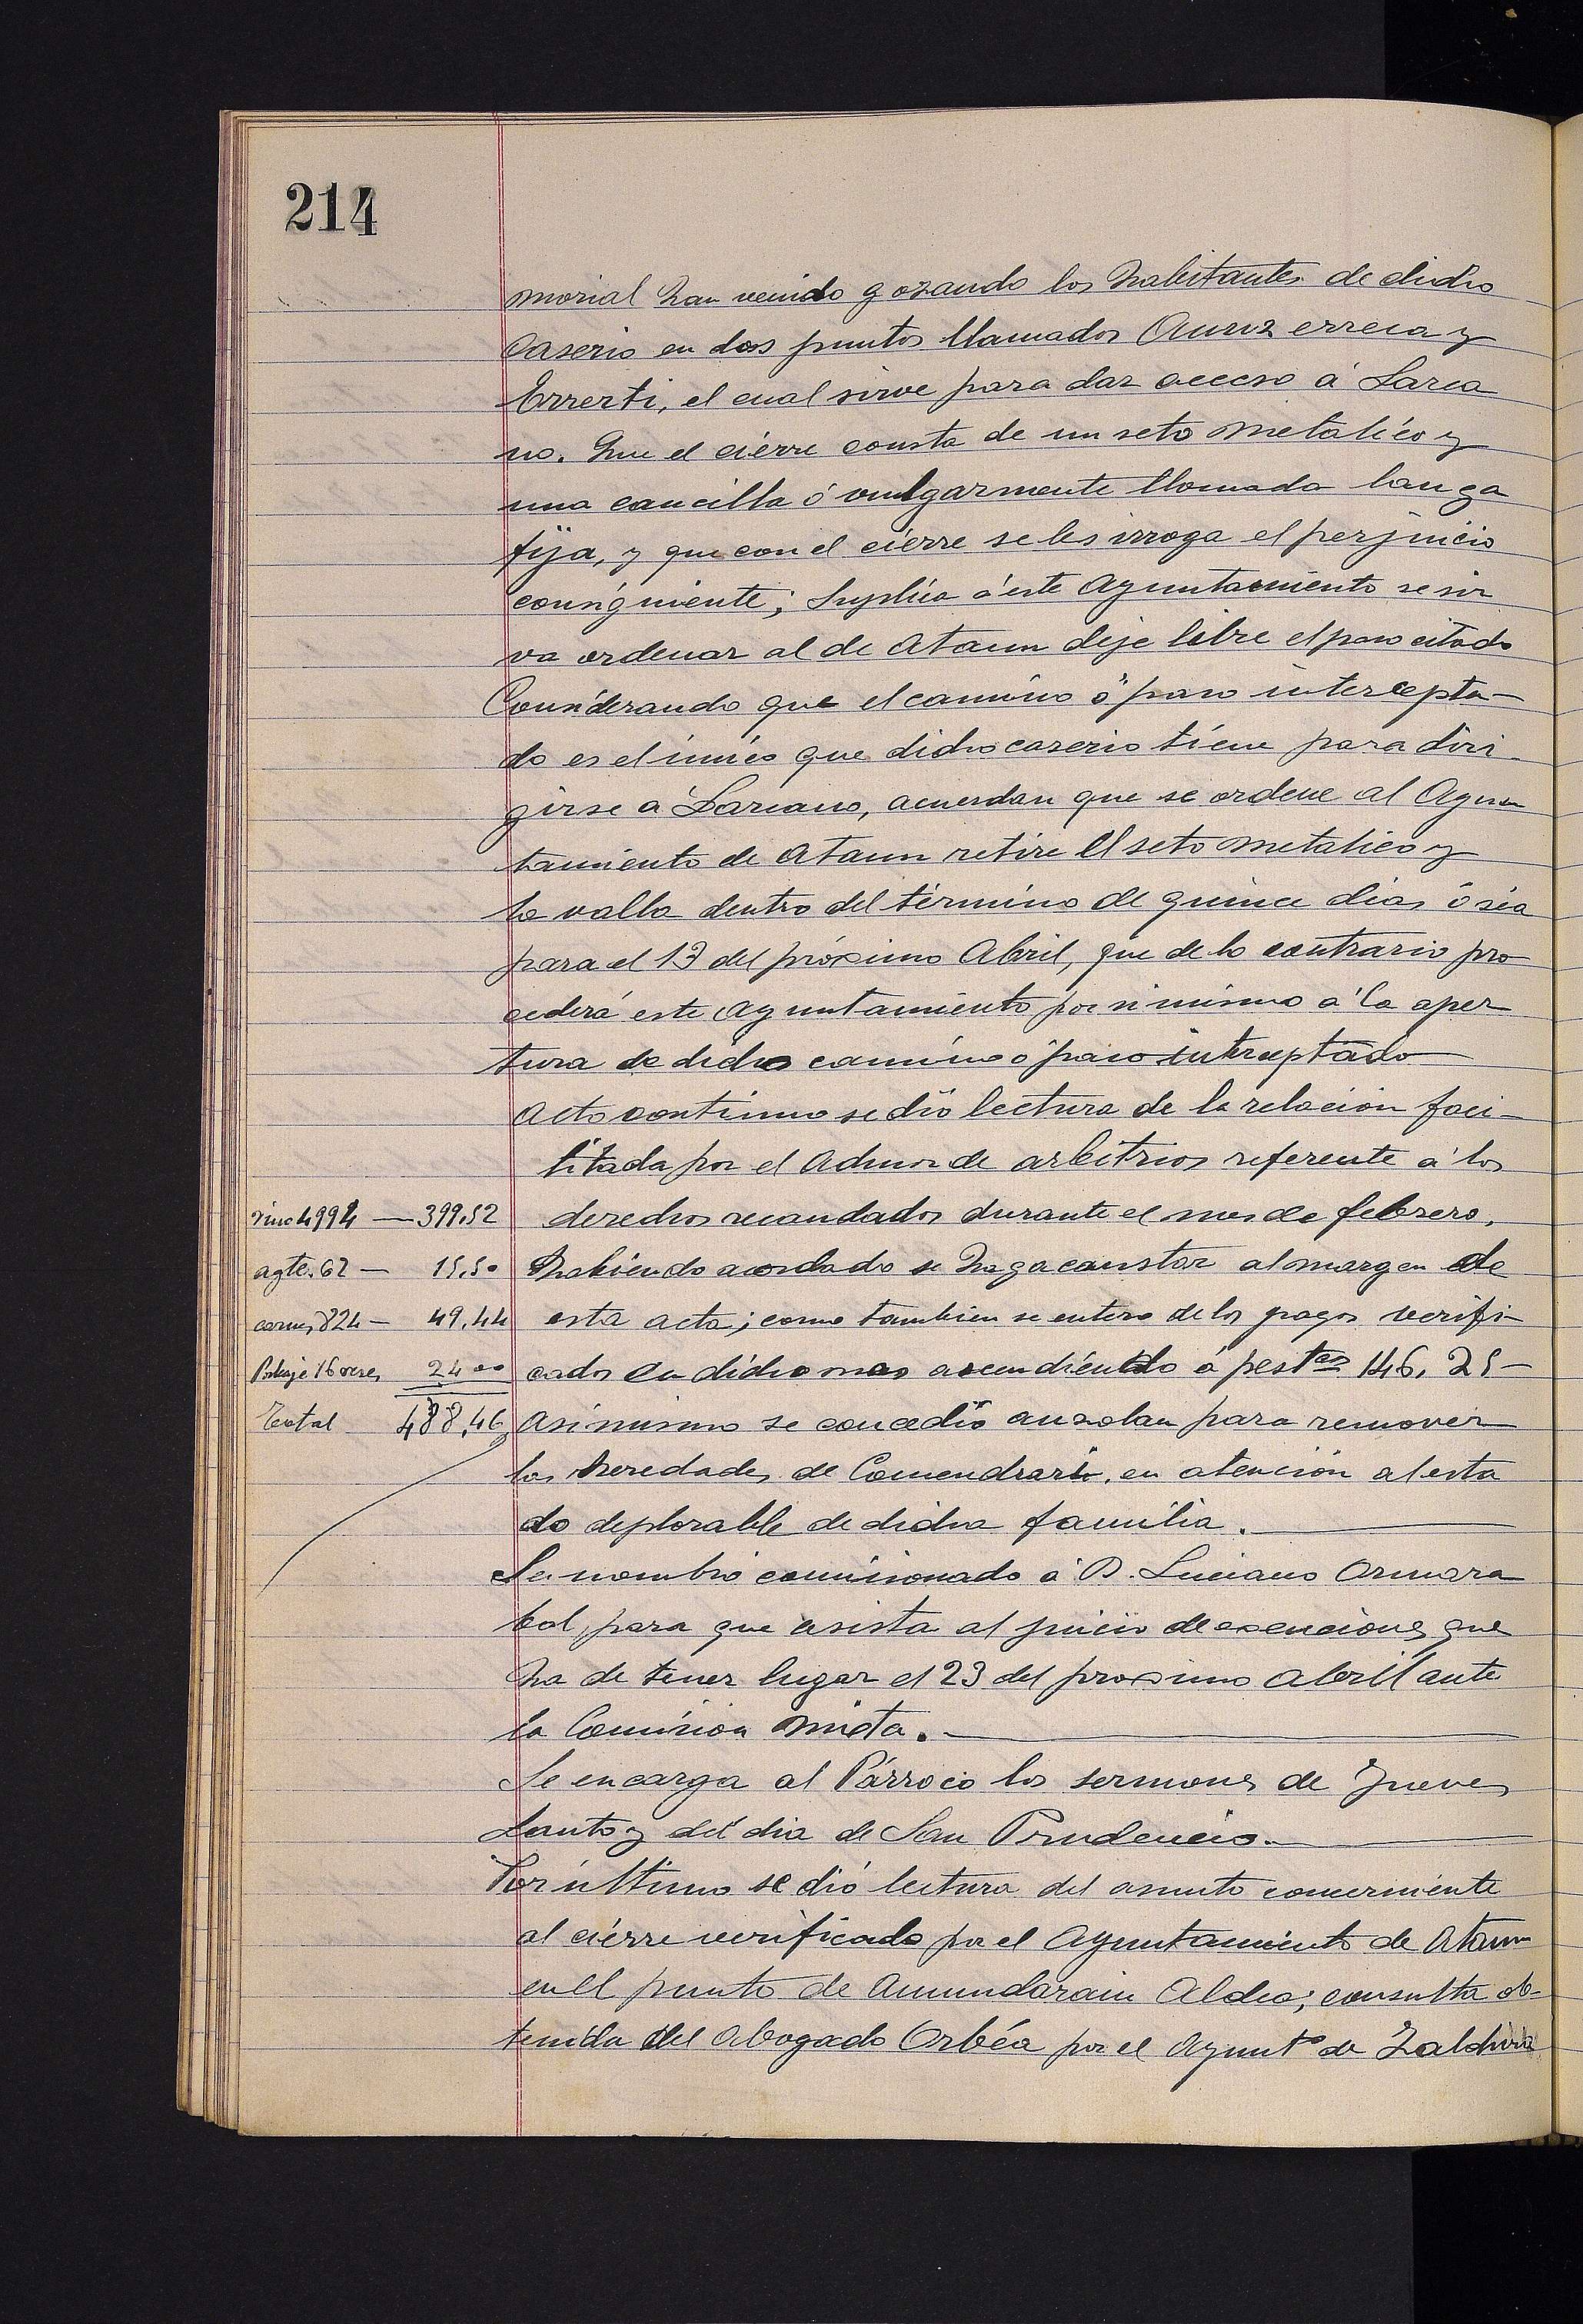 214
morial han venido gozando los habitantes de dicho
Caserio en dos puntos llamados Aunz erreca y
Errerti, el cual sirve para dar acceso á Larca
no. Que el ciérre consta de un seto metalico y
una cancilla ó vulgarmente llamada langa
fija, y que con el ciérre se les irroga el perjuicio
consiguiente; Suplica á este Ayuntamiento se sir
va ordenar al de Ataun deje libre el paso citado
Considerando que el camino ó paso intercepta-
do es el único que dicho caserio tiene para diri-
girse a Larcano, acuerdan que se ordene al Ayun
tamiento de Ataun retire el seto metalico y
la valla dentro del término de quince dias ó sea
para el 13 del próximo Abril, que de lo contrario pro
cederá este Ayuntamiento por si mismo á la aper
tura de dicho camino ó paso interceptado
Acto continuo se dió lectura de la relacion faci-
litada por el Admor de arbitrios referente á los
vino 4994 — 399,52 derechos recaudados durante el mes de febrero,
agte. 62 — 15,50 habiendo acordado se haga constar al margen de
carnes 824 — 49,44 esta acta; como tambien se entero de los pagos verifi-
16 reses 24 00 cados en dicho mes ascendiendo á pestas 146,25-
Total 488,46 Asimismo se concedió auzolan para remover
las heredades de Comendrari, en atención al esta
do deplorable de dicha familia.
Se nombró comisionado á D. Luciano Ormaza
bal, para que asista al juicio de exenciones que
ha de tener lugar el 23 del proximo abril ante
la Comision mixta.
Se encarga al Párroco los sermones de Jueves
Santo y del dia de San Prudencio.
Por último se dió lectura del asunto concerniente
al ciérre verificado por el Ayuntamiento de Ataun
en el punto de Amundarain Aldea; consulta ob-
tenida del Abogado Orbéa por el Ayuntº de Zaldivia